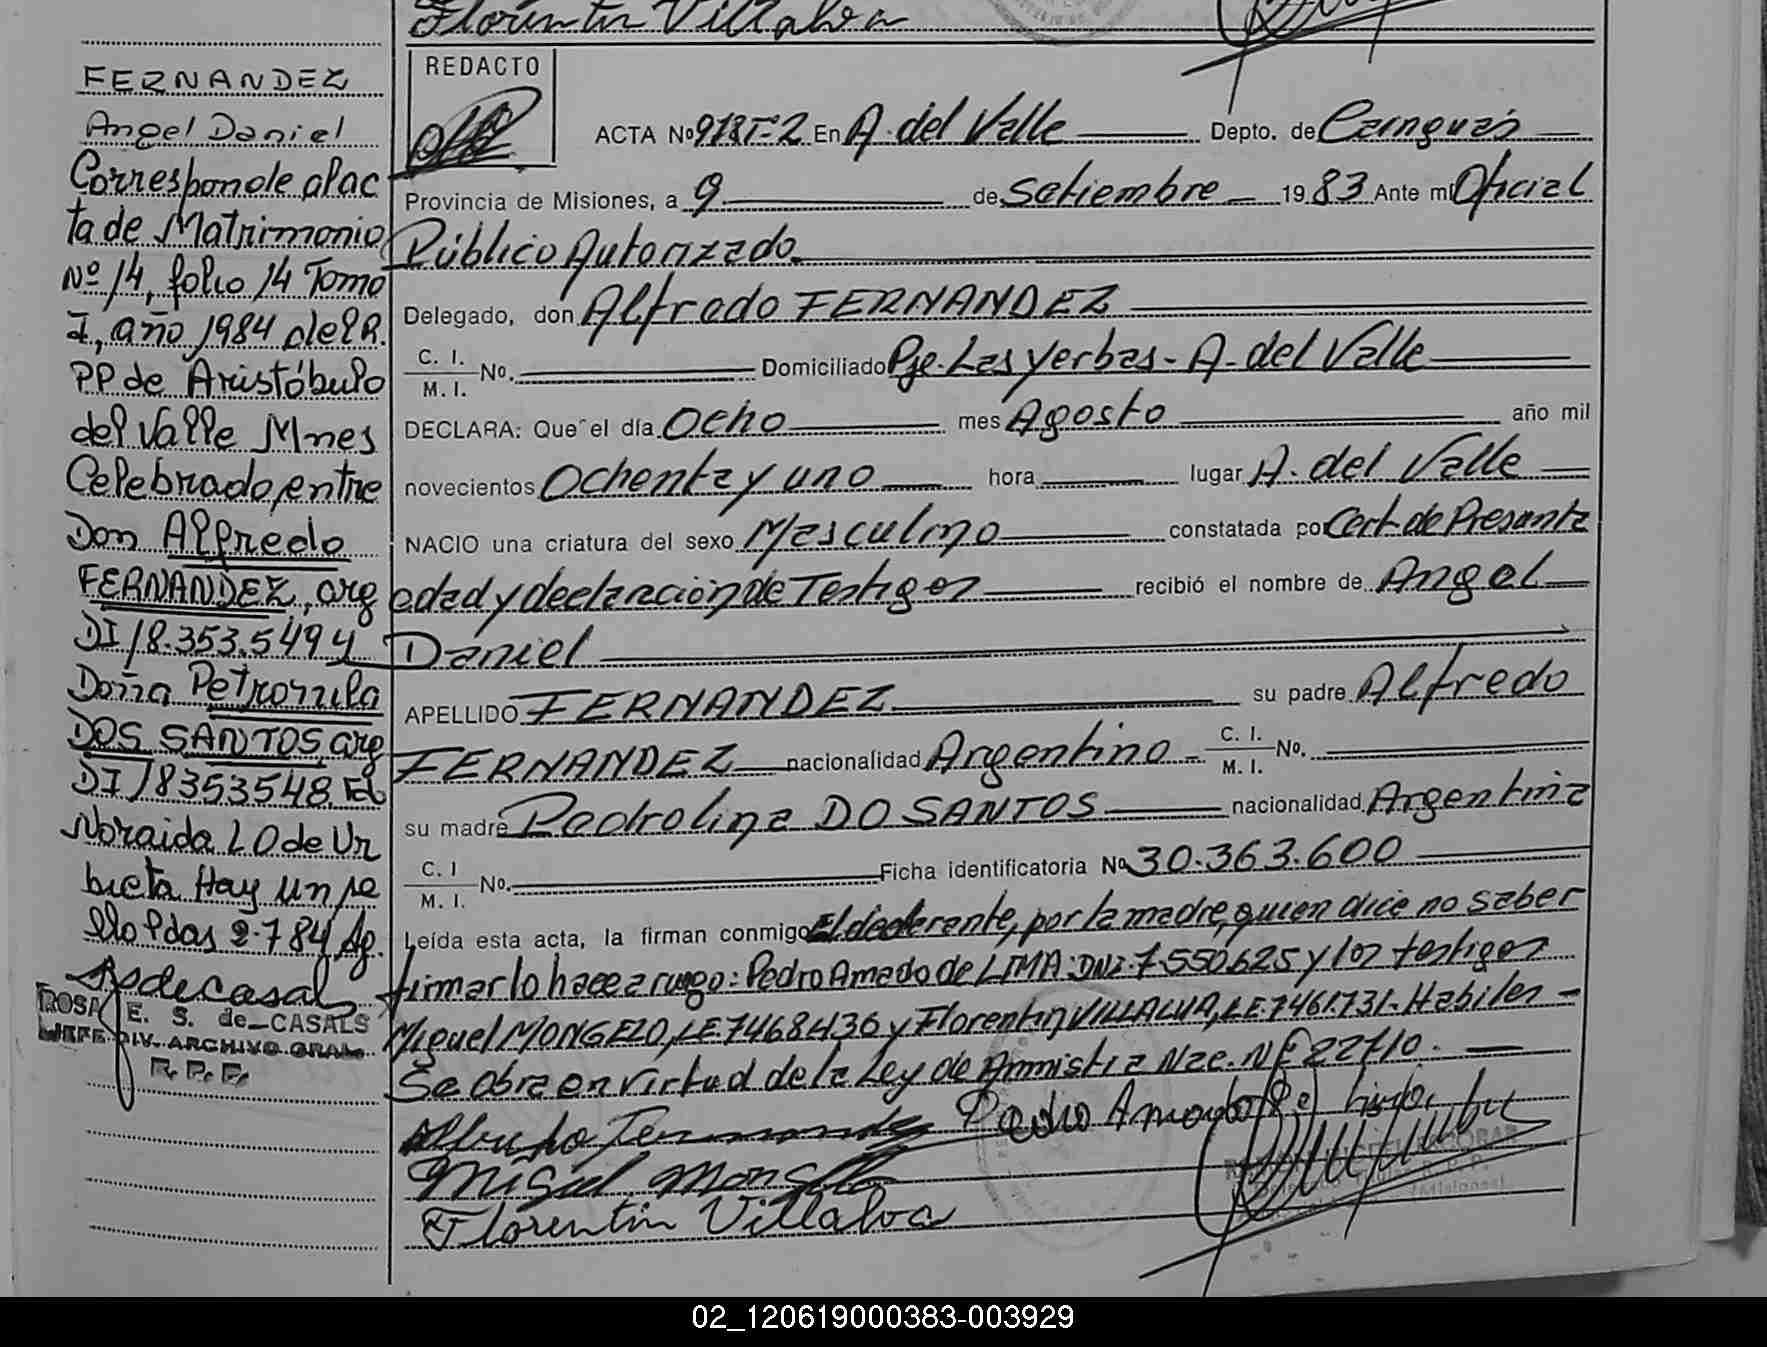 Florentin Villalva
FERNANDEZ
Angel Daniel
Corresponde al ac
ta de Matrimonio
Nº 14, folio 14 Tomo
I, año 1984 del R.
PP de Aristóbulo
del Valle Mnes
Celebrado, entre
Don Alfredo
FERNANDEZ, arg
DI 18.353.549 y
Doña Petronila
DOS SANTOS arg
DI 18353548. Fdo
Noraida L O de Ur
bieta Hay un se
llo Pdas 2.7 84 Ap.
Rosdecasals
ROSA E. S. de CASALS
JEFE DIV. ARCHIVO GRAL.
R. P. P.
REDACTO
ACTA Nº 918T-2 En A. del Valle Depto. de Cainguás
Provincia de Misiones, a 9 de Setiembre 19 83 Ante mí Oficial
Público Autorizado
Delegado, don Alfredo FERNANDEZ
C. I.
M. I. No. Domiciliado Pje. Las Yerbas - A. del Valle
DECLARA: Que el día Ocho mes Agosto año mil
novecientos Ochenta y uno hora lugar A. del Valle
NACIO una criatura del sexo Masculino constatada por Cert. de Presunta
edad y declaración de Testigos recibió el nombre de Angel
Daniel
APELLIDO FERNANDEZ su padre Alfredo
FERNANDEZ nacionalidad Argentino C. I.
M. I. No.
su madre Pedrolina DO SANTOS nacionalidad Argentina
C. I
M. I. No. Ficha identificatoria No 30.363.600
Leída esta acta, la firman conmigo El declarante, por la madre, quien dice no saber
firmar lo hace a ruego: Pedro Amado de LIMA: DNI. 7.550.625 y los testigos
Miguel MONGELO, LE. 7468436 y Florentin VILLALVA, LE. 7461.731. Habiles -
Se obra en virtud de la Ley de Amnistia Nac. Nº 22710.
Alfredo Fernandez Pedro Amado
Miguel Mongelo
Florentin Villalva
02_120619000383-003929